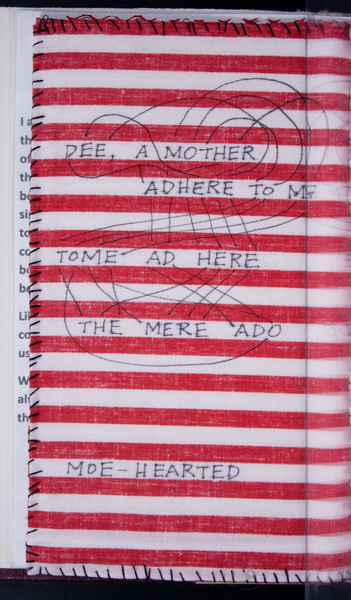 DEE, A MOTHER
ADHERE TO ME
TOME AD HERE
THE MERE ADO
MOE-HEARTED